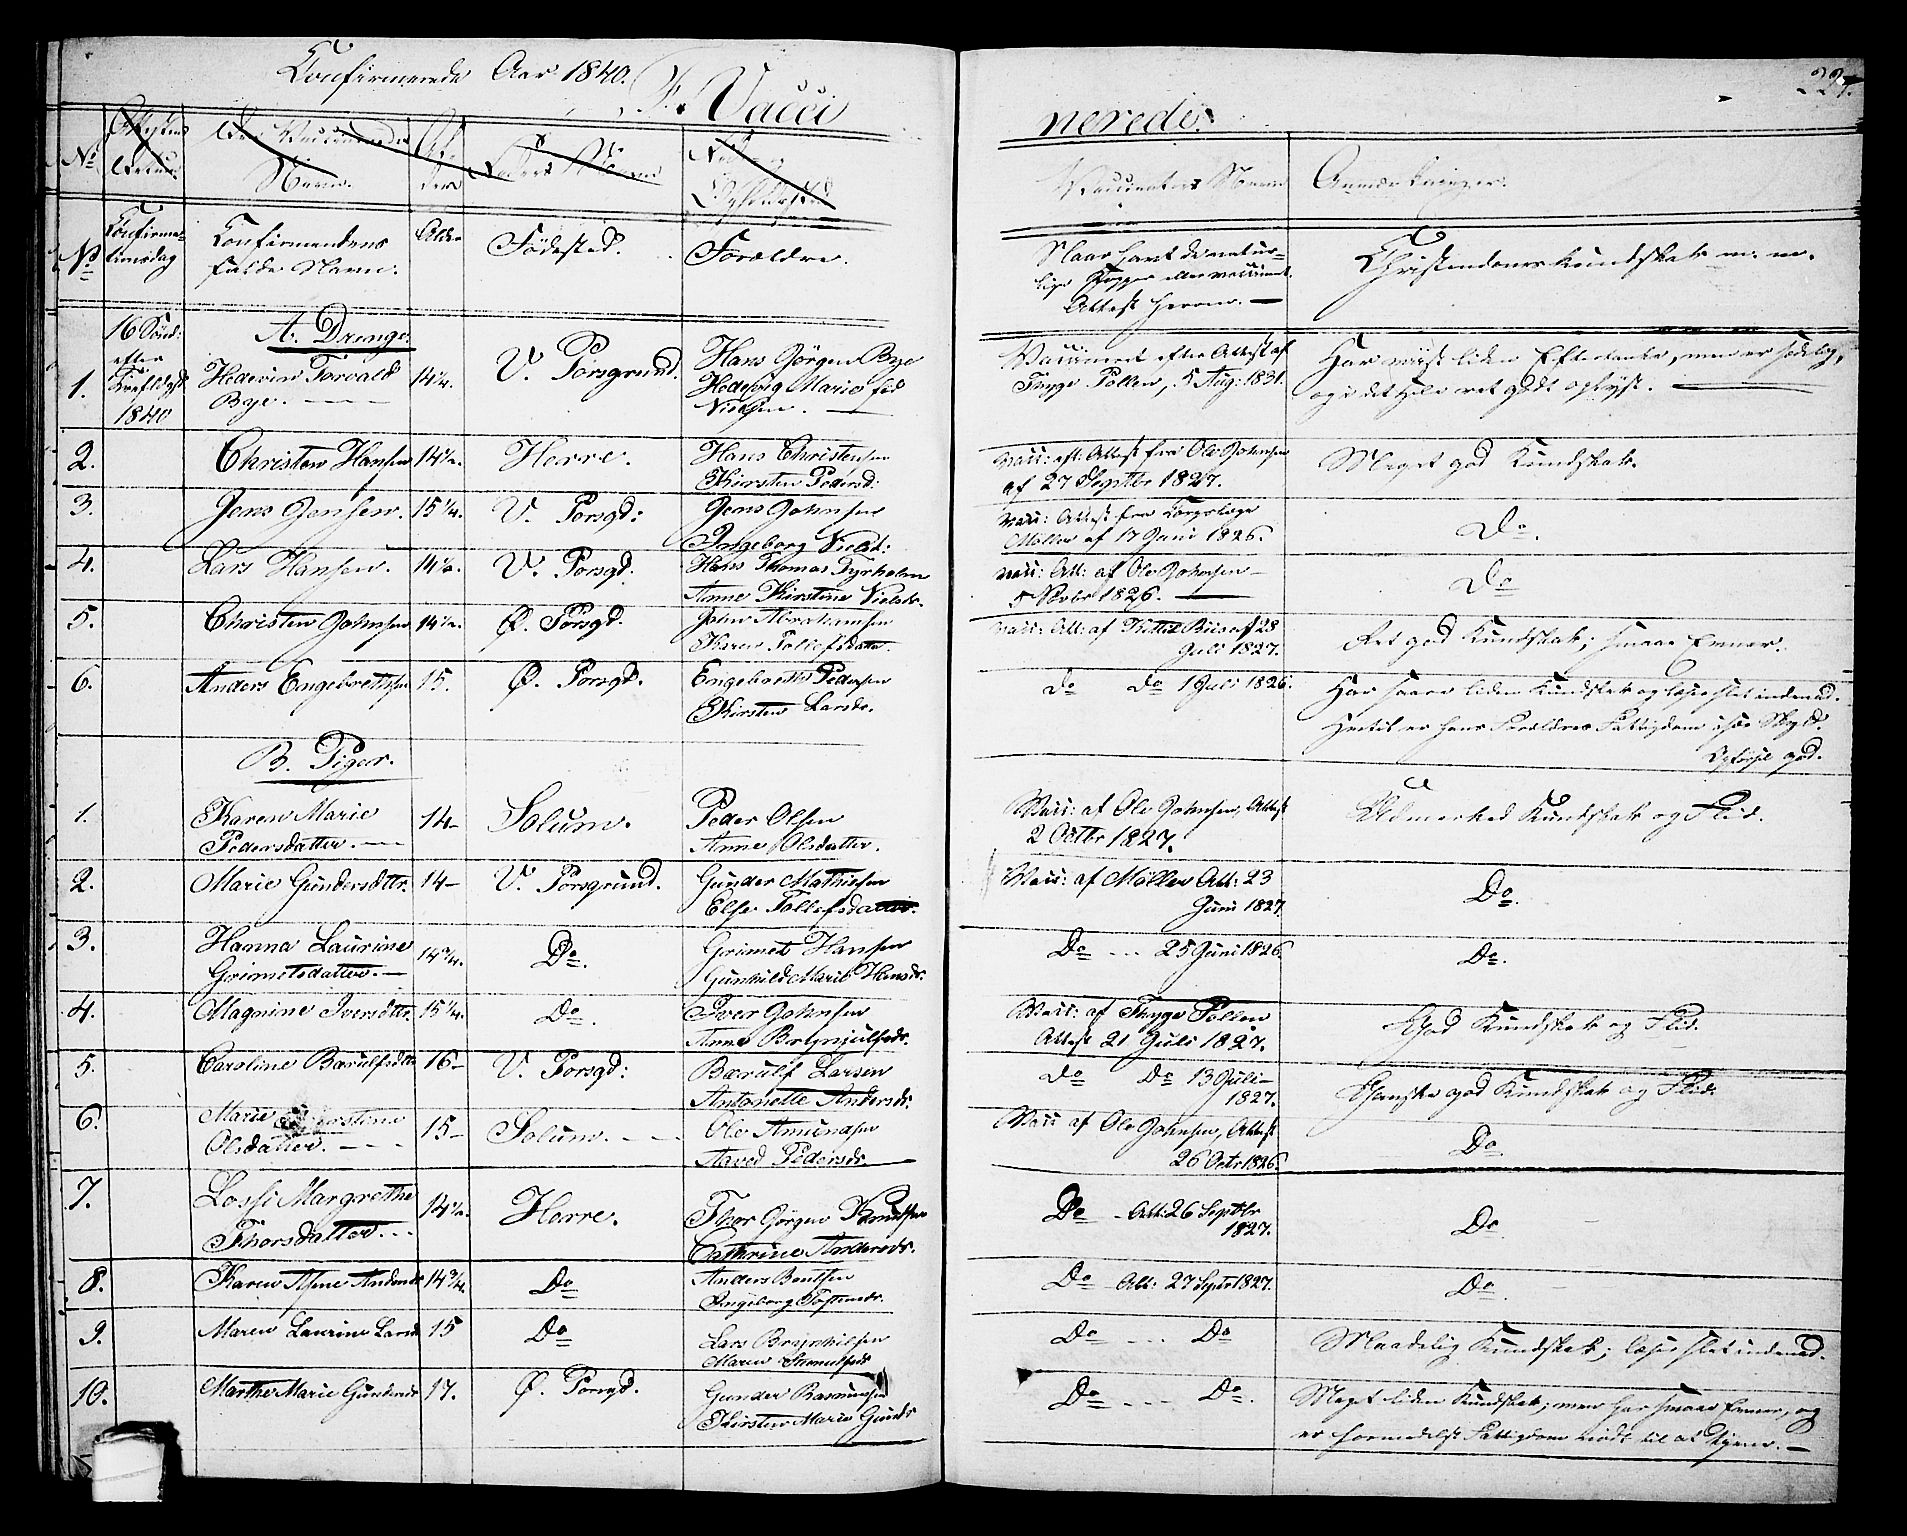 Confirmerede Aar 1840.
F. Vacci
nerede.
227.
No
Attestens Datum
Den Vaccineredes Navn.
Alderen
Fødested
Vaccinateurs Navn
Anmærkninger.
No
Confirmationsdag
Confirmandens fulde Navn.
Alder
Fødested.
Forældre.
Naar havt de naturlige Kopper eller vaccineret. Attest herom. —
Christendomskundskab m. m.
16 Sønd: efter Trefoldgd 1840
A. Drenge.
1. Hedevin Torvald Bye. 14½. V. Porsgrund. Hans Jørgen Bye
Hedevig Marie fød Nielsen.
Vaccineret efter Attest af
Thygge Pollen, 5 Aug: 1831.
Har viist liden Eftertanke, men er sædelig,
og i det Hele ret godt oplyst. —
2. Christen Hansen 14½. Herre. Hans Christensen
Kirsten Pedersd:
Vacc: eft: Attest fra Ole Johnsen
af 27 Septbr 1827.
Meget god Kundskab.
3. Jens Jensen. 15¼. V. Porsgd: Jens Johnsen
Ingeborg Nielsd:
Vacc: Attest fra
Møller af 17 Juni 1826.
Do.
4. Lars Hansen. 14½. V. Porsgd. Hans Thomas Tyrholm
Anne Kirstine Nielsdr.
Vacc: Att: af Ole Johnsen —
5 Novbr 1826. —
Do
5. Christen Johnsen 14½. Ø. Porsgd. John Abrahamsen
Karen Tollefsdatter.
Vacc: Att: af Kittel 28
Juli 1827.
Ret god Kundskab; smaae Evner.
6. Anders Engebretsen 15. Ø. Porsgd. Engebreth Pedersen
Kirsten Larsdr.
Do Do 1 Juli 1826.
Har saare liden Kundskab og læser slet indenad.
Hertil er hans Forældres Fattigdom især Skyld.
Opførsel god.
B. Piger.
1. Karen Marie
Pedersdatter. — 14- Solum. Peder Olsen
Anne Olsdatter.
Vacc: af Ole Johnsen, Attest
2 Octbr 1827.
Udmærked Kundskab og Flid.
2. Marie Gundersdttr. 14- V. Porsgrund. Gunder Mathisen
Else Tollefsdatter.
Vacc: af Møller Att: 23
Juni 1827.
Do.
3. Hanna Laurine
Grimetsdatter. — 14¾. Do. Grimet Hansen
Gunhild Marie Hansdr.
Do ... 25 Juni 1826.
Do.
4. Magnine Iversdttr. 15¼. Do. Iver Johnsen
Anne Brynjulfsdr.
Vacc: af Thyge Pollen
Attest 21 Juli 1827.
God Kundskab og Flid.
5. Caroline Bærulfsdtt 16- V. Porsgd: Bærulf Larsen
Antonette Andersdr.
Do Do 13 Juli —
1827.
Ganske god Kundskab og Flid.
6. Marie Kirstine
Olsdatter. — 15- Solum. Ole Amundsen
Aaved Pedersdr.
Vacc af Ole Johnsen, Attest
26 Octr 1826.
Do
7. Lossi Margrethe
Thorsdatter. 14½. Herre. Thor Jørgen Knudsen
Cathrine Andersdr.
Do - Att: 26 Septbr
1827.
Do
8. Karen Asine Andersdr 14¾. Do Anders Bentsen
Ingeborg Tostensdr.
Do Att: 27 Septr 1827.
Do
9. Maren Laurine Larsd 15 Do Lars Brynhilsen
Maren
Do ... Do
Maadelig Kundskab; læser slet indenad.
10. Marthe Marie Gundersdr 17. Ø. Porsgd. Gunder Rasmusen
Kirsten Marie Gundsdr
Do ... Do.
Meget liden Kundskab; men har smaae Evner, og
er formedelst Fattigdom nødt til at tjene. —